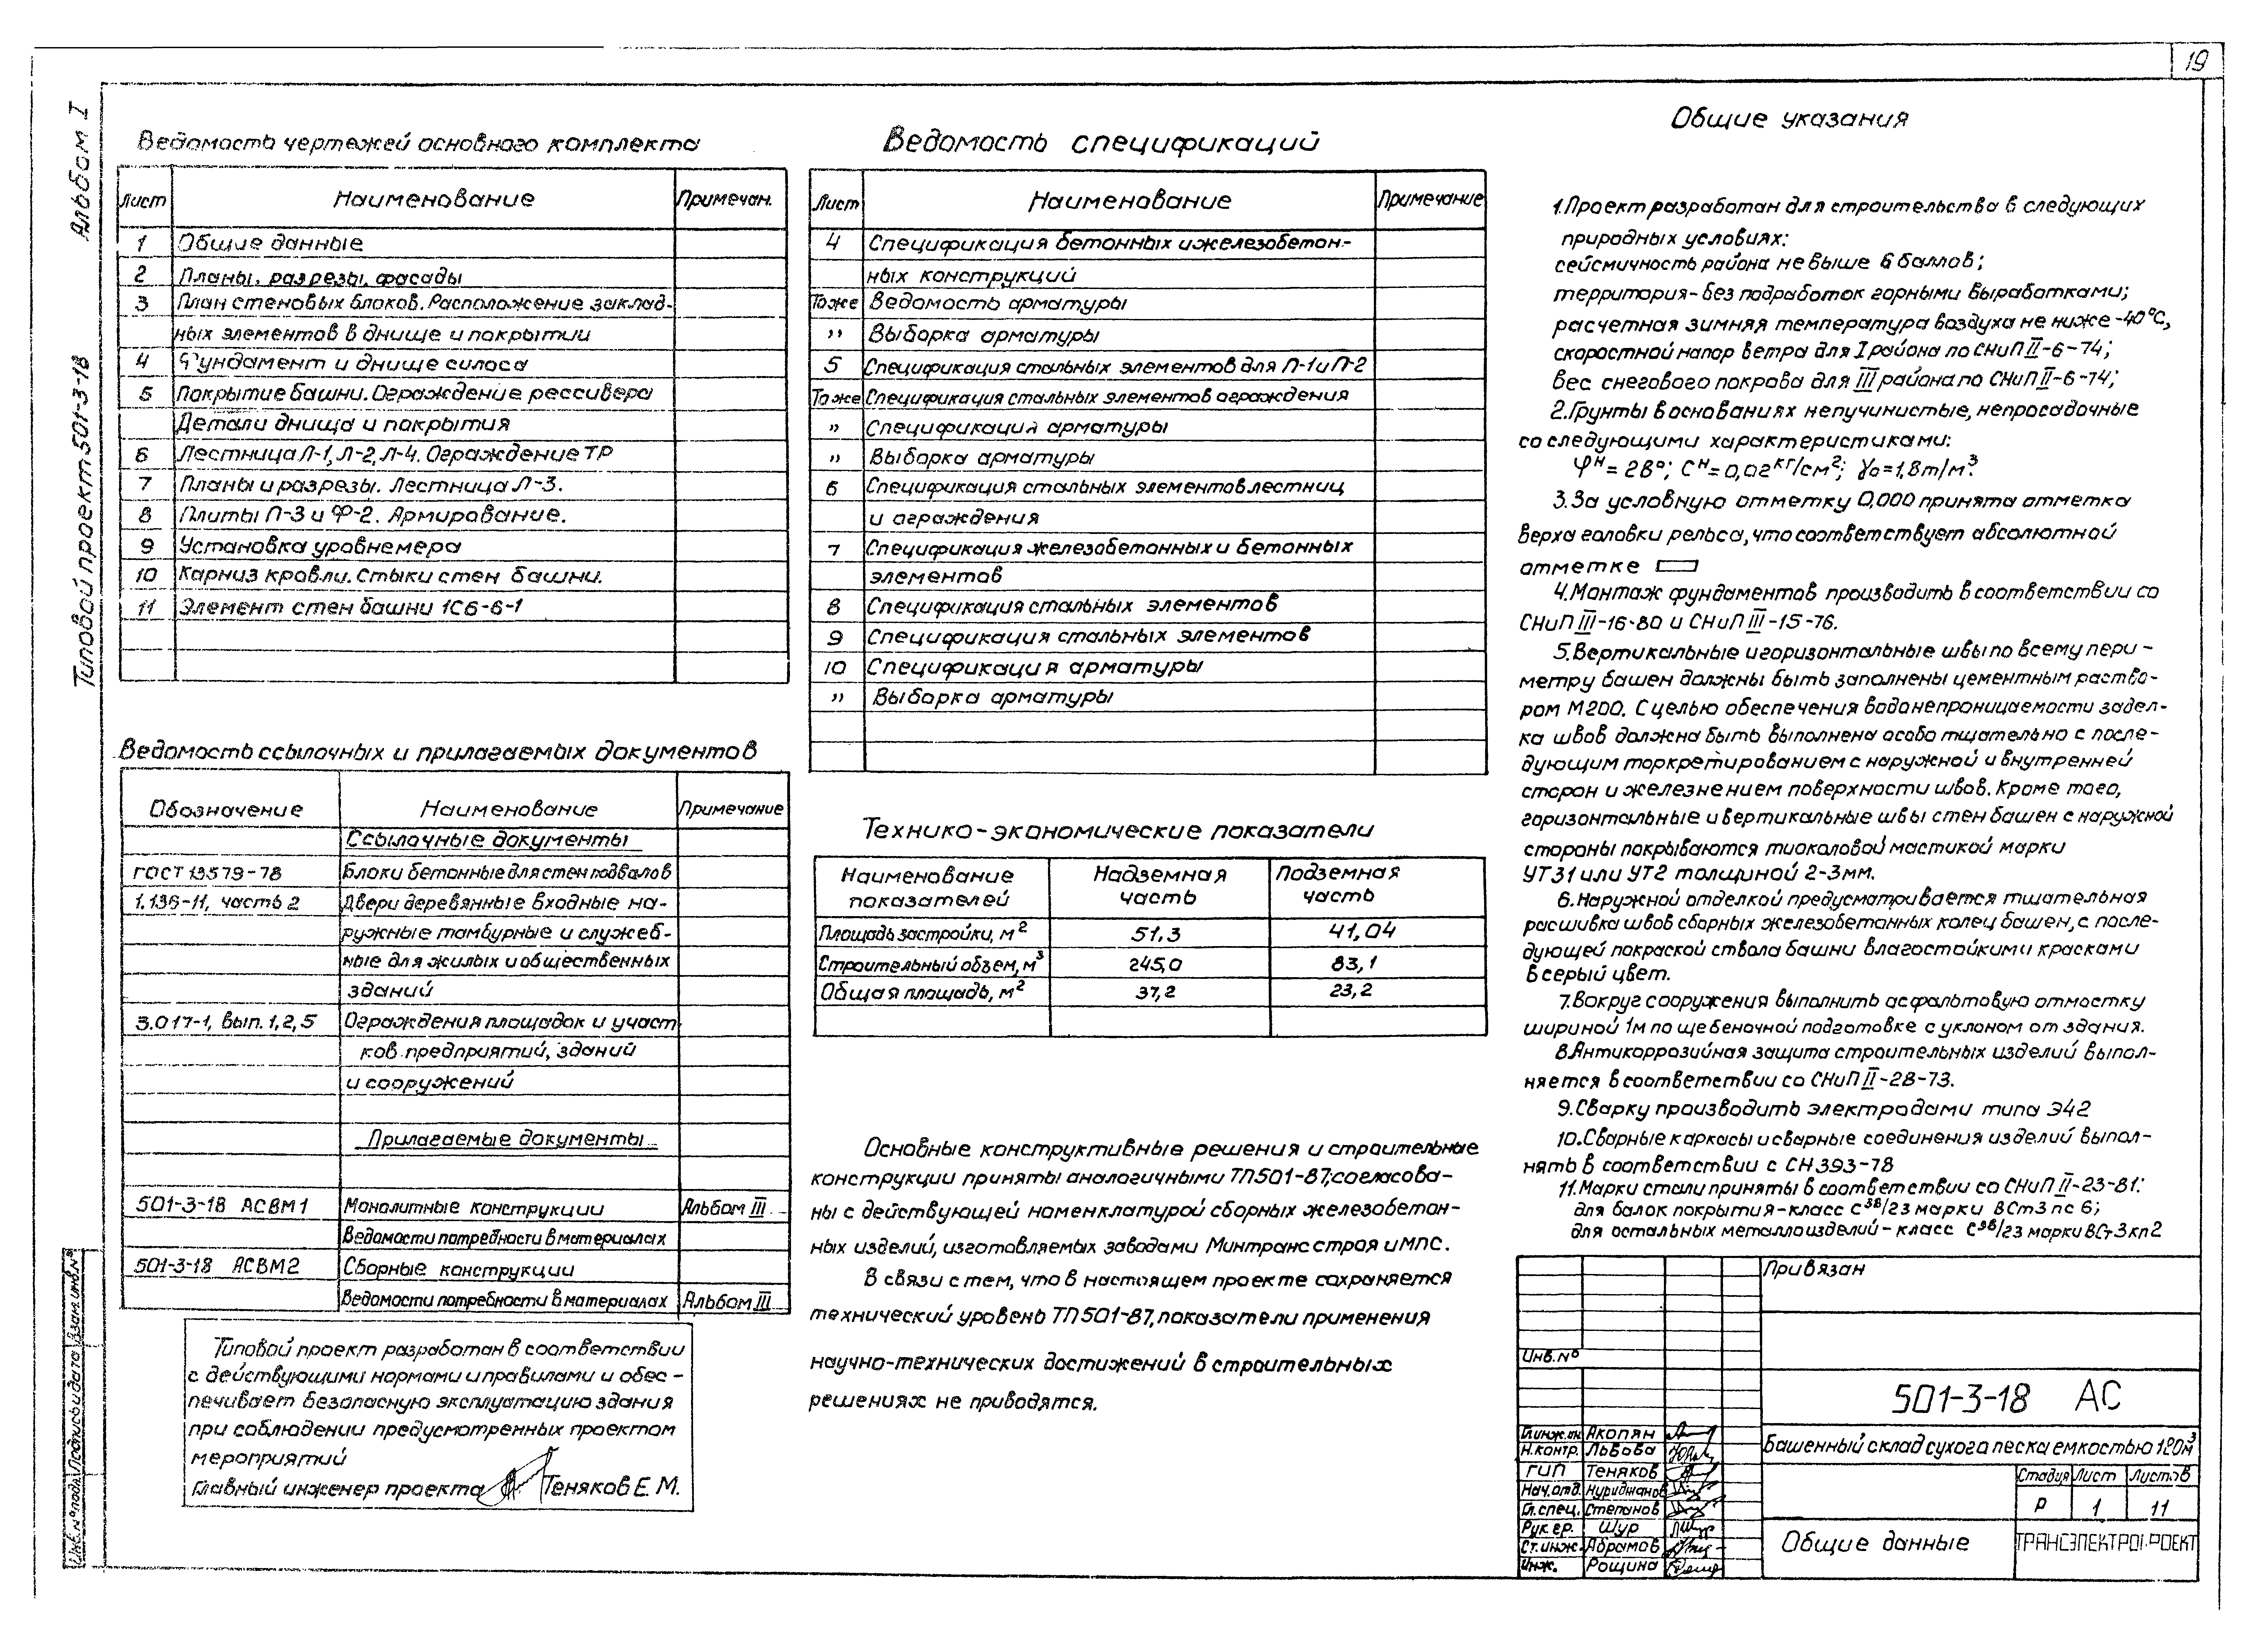 19
Альбом I
Типовой проект 501-3-18
Ведомость чертежей основного комплекта
Лист Наименование Примечан.
1 Общие данные
2 Планы, разрезы, фасады
3 План стеновых блоков. Расположение заклад-
ных элементов в днище и покрытии
4 Фундамент и днище силоса
5 Покрытие башни. Ограждение рессивера
Детали днища и покрытия
6 Лестница Л-1, Л-2, Л-4. Ограждение ТР
7 Планы и разрезы. Лестница Л-3.
8 Плиты П-3 и Ф-2. Армирование.
9 Установка уровнемера
10 Карниз кровли. Стыки стен башни.
11 Элемент стен башни 1С6-6-1
Ведомость ссылочных и прилагаемых документов
Обозначение Наименование Примечание
Ссылочные документы
ГОСТ 13579-78 Блоки бетонные для стен подвалов
1.136-11, часть 2 Двери деревянные входные на-
ружные тамбурные и служеб-
ные для жилых и общественных
зданий
3.017-1, вып. 1, 2, 5 Ограждения площадок и участ
ков предприятий, зданий
и сооружений
Прилагаемые документы
501-3-18 АСВМ1 Монолитные конструкции Альбом III
Ведомости потребности в материалах
501-3-18 АСВМ2 Сборные конструкции
Ведомости потребности в материалах Альбом III
Типовой проект разработан в соответствии
с действующими нормами и правилами и обес-
печивает безопасную эксплуатацию здания
при соблюдении предусмотренных проектом
мероприятий
Главный инженер проекта Теняков Е. М.
Инв. № подл. Подпись и дата Взам. инв. №
Ведомость спецификаций
Лист Наименование Примечание
4 Спецификация бетонных и железобетон-
ных конструкций
То же Ведомость арматуры
" Выборка арматуры
5 Спецификация стальных элементов для П-1 и П-2
То же Спецификация стальных элементов ограждения
" Спецификация арматуры
" Выборка арматуры
6 Спецификация стальных элементов лестниц
и ограждения
7 Спецификация железобетонных и бетонных
элементов
8 Спецификация стальных элементов
9 Спецификация стальных элементов
10 Спецификация арматуры
" Выборка арматуры
Технико-экономические показатели
Наименование показателей Надземная часть Подземная часть
Площадь застройки, м² 51,3 41,04
Строительный объем, м³ 245,0 83,1
Общая площадь, м² 37,2 23,2
Основные конструктивные решения и строительные
конструкции приняты аналогичными ТП501-87; согласова-
ны с действующей номенклатурой сборных железобетон-
ных изделий, изготовляемых заводами Минтрансстроя и МПС.
В связи с тем, что в настоящем проекте сохраняется
технический уровень ТП 501-87, показатели применения
научно-технических достижений в строительных
решениях не приводятся.
Общие указания
1. Проект разработан для строительства в следующих
природных условиях:
сейсмичность района не выше 6 баллов;
территория - без подработок горными выработками;
расчетная зимняя температура воздуха не ниже -40°С,
скоростной напор ветра для I района по СНиП II-6-74;
вес снегового покрова для III района по СНиП II-6-74;
2. Грунты в основаниях непучинистые, непросадочные
со следующими характеристиками:
φн = 28°; Сн = 0,02 кг/см²; γо = 1,8 т/м³
3. За условную отметку 0,000 принята отметка
верха головки рельса, что соответствует абсолютной
отметке
4. Монтаж фундаментов производить в соответствии со
СНиП III-16-80 и СНиП III-15-76.
5. Вертикальные и горизонтальные швы по всему пери-
метру башен должны быть заполнены цементным раство-
ром М200. С целью обеспечения водонепроницаемости задел-
ка швов должна быть выполнена особо тщательно с после-
дующим торкретированием с наружной и внутренней
сторон и железнением поверхности швов. Кроме того,
горизонтальные и вертикальные швы стен башен с наружной
стороны покрываются тиоколовой мастикой марки
УТ31 или УТ2 толщиной 2-3мм.
6. Наружной отделкой предусматривается тщательная
расшивка швов сборных железобетонных колец башен, с после-
дующей покраской ствола башни влагостойкими красками
в серый цвет.
7. Вокруг сооружения выполнить асфальтовую отмостку
шириной 1м по щебеночной подготовке с уклоном от здания.
8. Антикоррозийная защита строительных изделий выпол-
няется в соответствии со СНиП II-28-73.
9. Сварку производить электродами типа Э42
10. Сварные каркасы и сварные соединения изделий выпол-
нять в соответствии с СН 393-78
11. Марки стали приняты в соответствии со СНиП II-23-81:
для балок покрытия - класс С38/23 марки ВСт3 пс 6;
для остальных металлоизделий - класс С38/23 марки ВСт3кп2
Привязан
Инв. №
501-3-18 АС
Гл.инж.ин Акопян
Н.контр. Львова
ГИП Теняков
Нач.отд. Нуриджанов
Гл.спец. Степанов
Рук.гр. Шур
Ст.инж. Абрамов
Инж. Рощина
Башенный склад сухого песка емкостью 120м³
Стадия Лист Листов
Р 1 11
Общие данные
ТРАНСЭЛЕКТРОПРОЕКТ